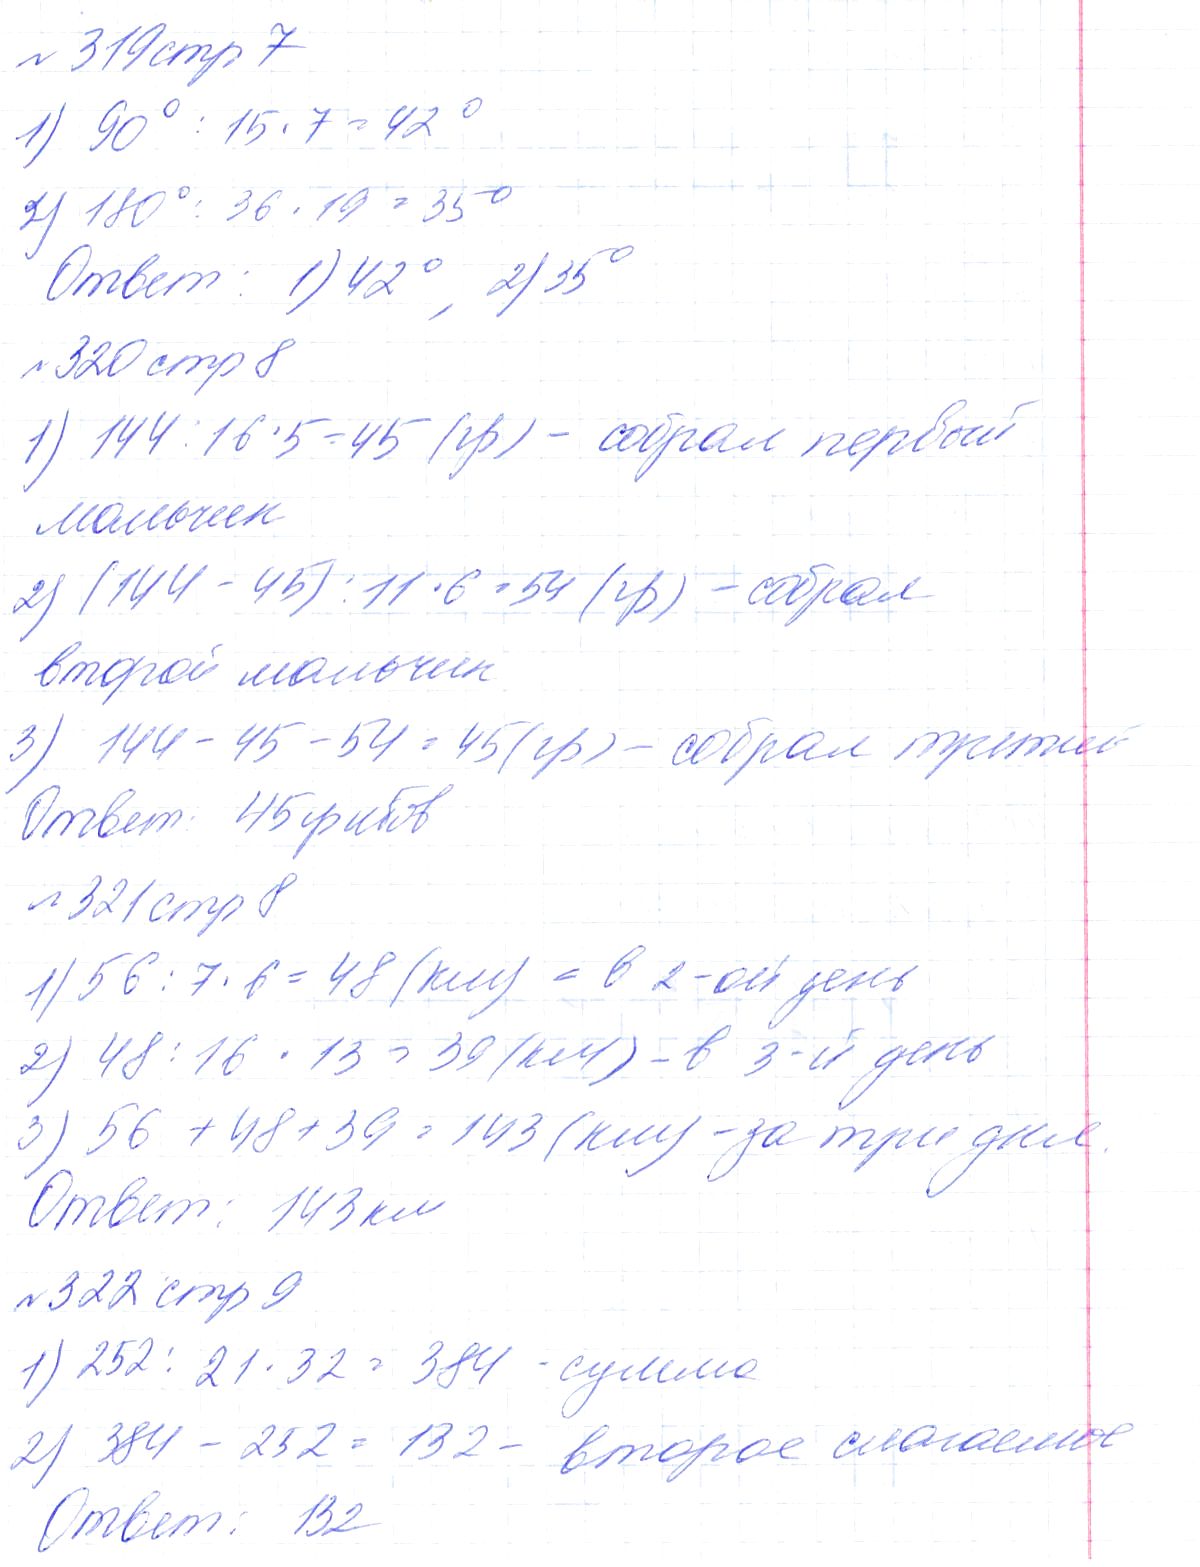 № 319 стр 7
1) 90° : 15 · 7 = 42°
2) 180° : 36 · 19 = 35°
Ответ: 1) 42°, 2) 35°
№ 320 стр 8
1) 144 : 16 · 5 = 45 (гр) - собрал первый
мальчик
2) (144 - 45) : 11 · 6 = 54 (гр) - собрал
второй мальчик
3) 144 - 45 - 54 = 45 (гр) - собрал третий
Ответ: 45 грибов
№ 321 стр 8
1) 56 : 7 · 6 = 48 (км) = в 2-ой день
2) 48 : 16 · 13 = 39 (км) - в 3-й день
3) 56 + 48 + 39 = 143 (км) - за три дня.
Ответ: 143 км
№ 322 стр 9
1) 252 : 21 · 32 = 384 - сумма
2) 384 - 252 = 132 - второе слагаемое
Ответ: 132